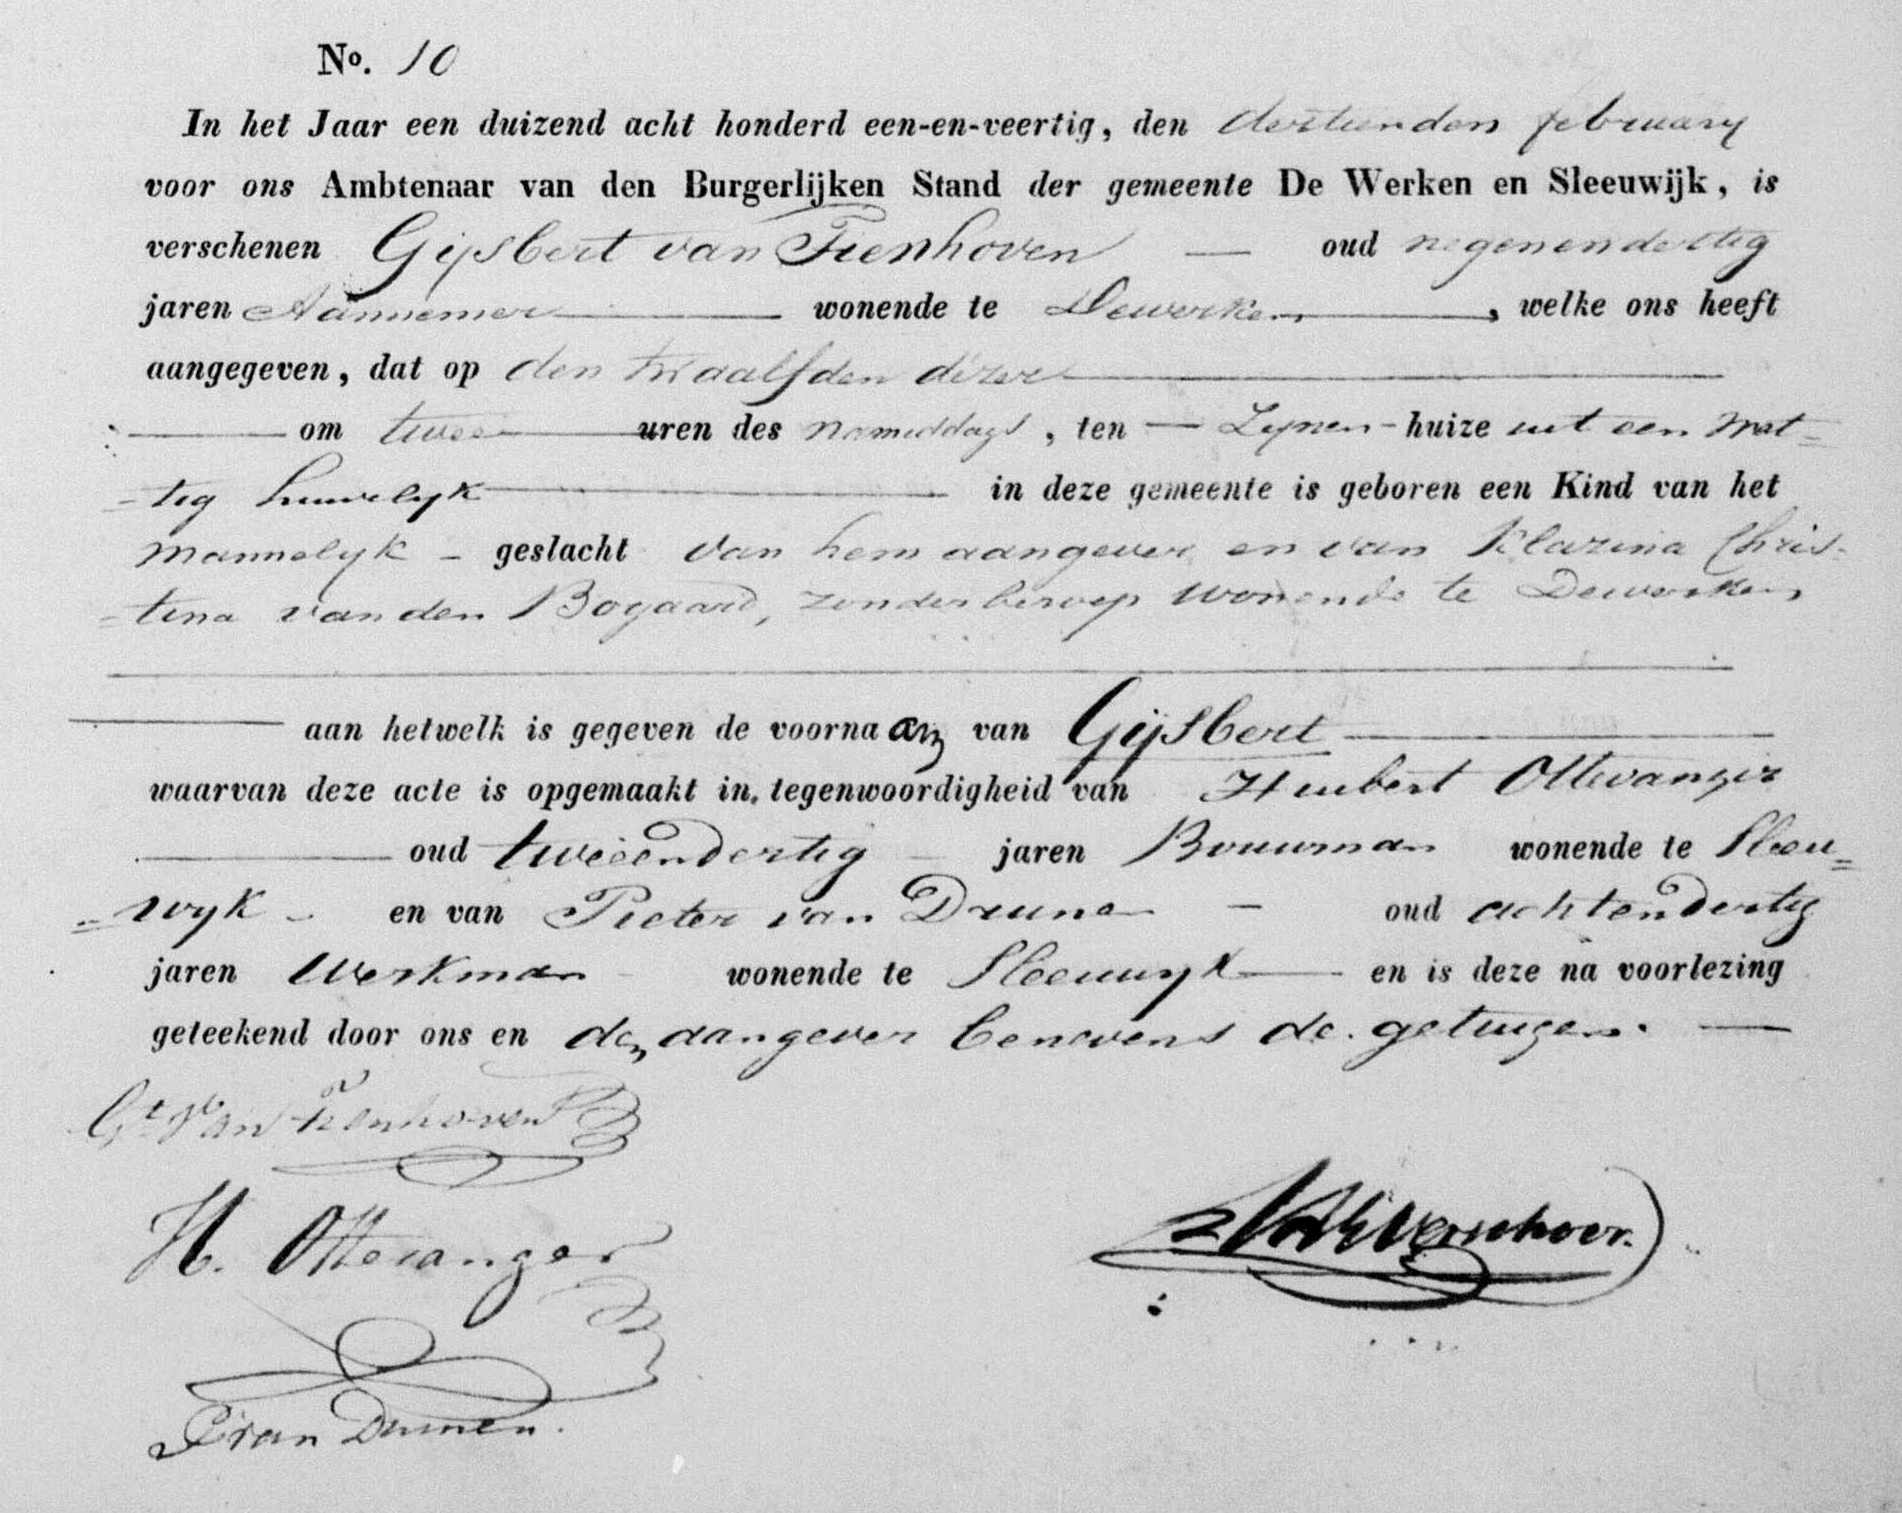 No. 10
In het Jaar een duizend acht honderd een-en-veertig, den dertienden february
voor ons Ambtenaar van den Burgerlijken Stand der gemeente De Werken en Sleeuwijk, is
verschenen Gijsbert van Tienhoven — oud negenendertig
jaren Aannemer wonende te Dewerken, welke ons heeft
aangegeven, dat op den twaalfden dezer
om twee uren des namiddags, ten — Zynen - huize uit een wet=
=tig huwelyk in deze gemeente is geboren een Kind van het
mannelyk - geslacht van hem aangever en van Klazina Chris-
=tina van den Bogaard, zonder beroep wonende te Dewerken
aan hetwelk is gegeven de voornaam van Gijsbert
waarvan deze acte is opgemaakt in tegenwoordigheid van Huibert Ottevanger
oud tweeendertig jaren Bouwman wonende te Sleeu=
=wyk - en van Pieter van Drunen - oud achtendertig
jaren Werkman wonende te Sleeuwyk en is deze na voorlezing
geteekend door ons en den aangever benevens de getuigen. —
Gt Van Tienhoven
H. Ottevanger
P van Drunen.